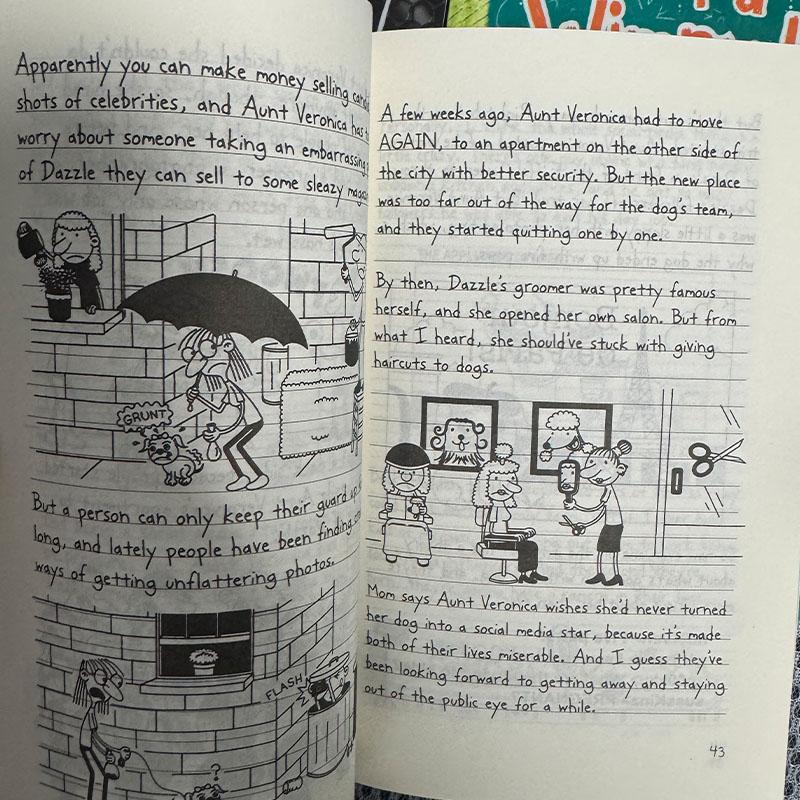 Wim
Apparently you can make money selling
shots of celebrities, and Aunt Veronica has
worry about someone taking an embarrassing
of Dazzle they can sell to some sleazy
GRUNT
But a person can only keep their guard up
long, and lately people have been finding
ways of getting unflattering photos.
FLASH
?
A few weeks ago, Aunt Veronica had to move
AGAIN, to an apartment on the other side of
the city with better security. But the new place
was too far out of the way for the dog's team,
and they started quitting one by one.
By then, Dazzle's groomer was pretty famous
herself, and she opened her own salon. But from
what I heard, she should've stuck with giving
haircuts to dogs.
Mom says Aunt Veronica wishes she'd never turned
her dog into a social media star, because it's made
both of their lives miserable. And I guess they've
been looking forward to getting away and staying
out of the public eye for a while.
43